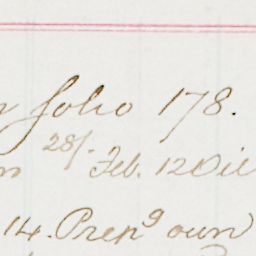 folio 178.
28/- Feb. 12 Oil
14. Prepg own